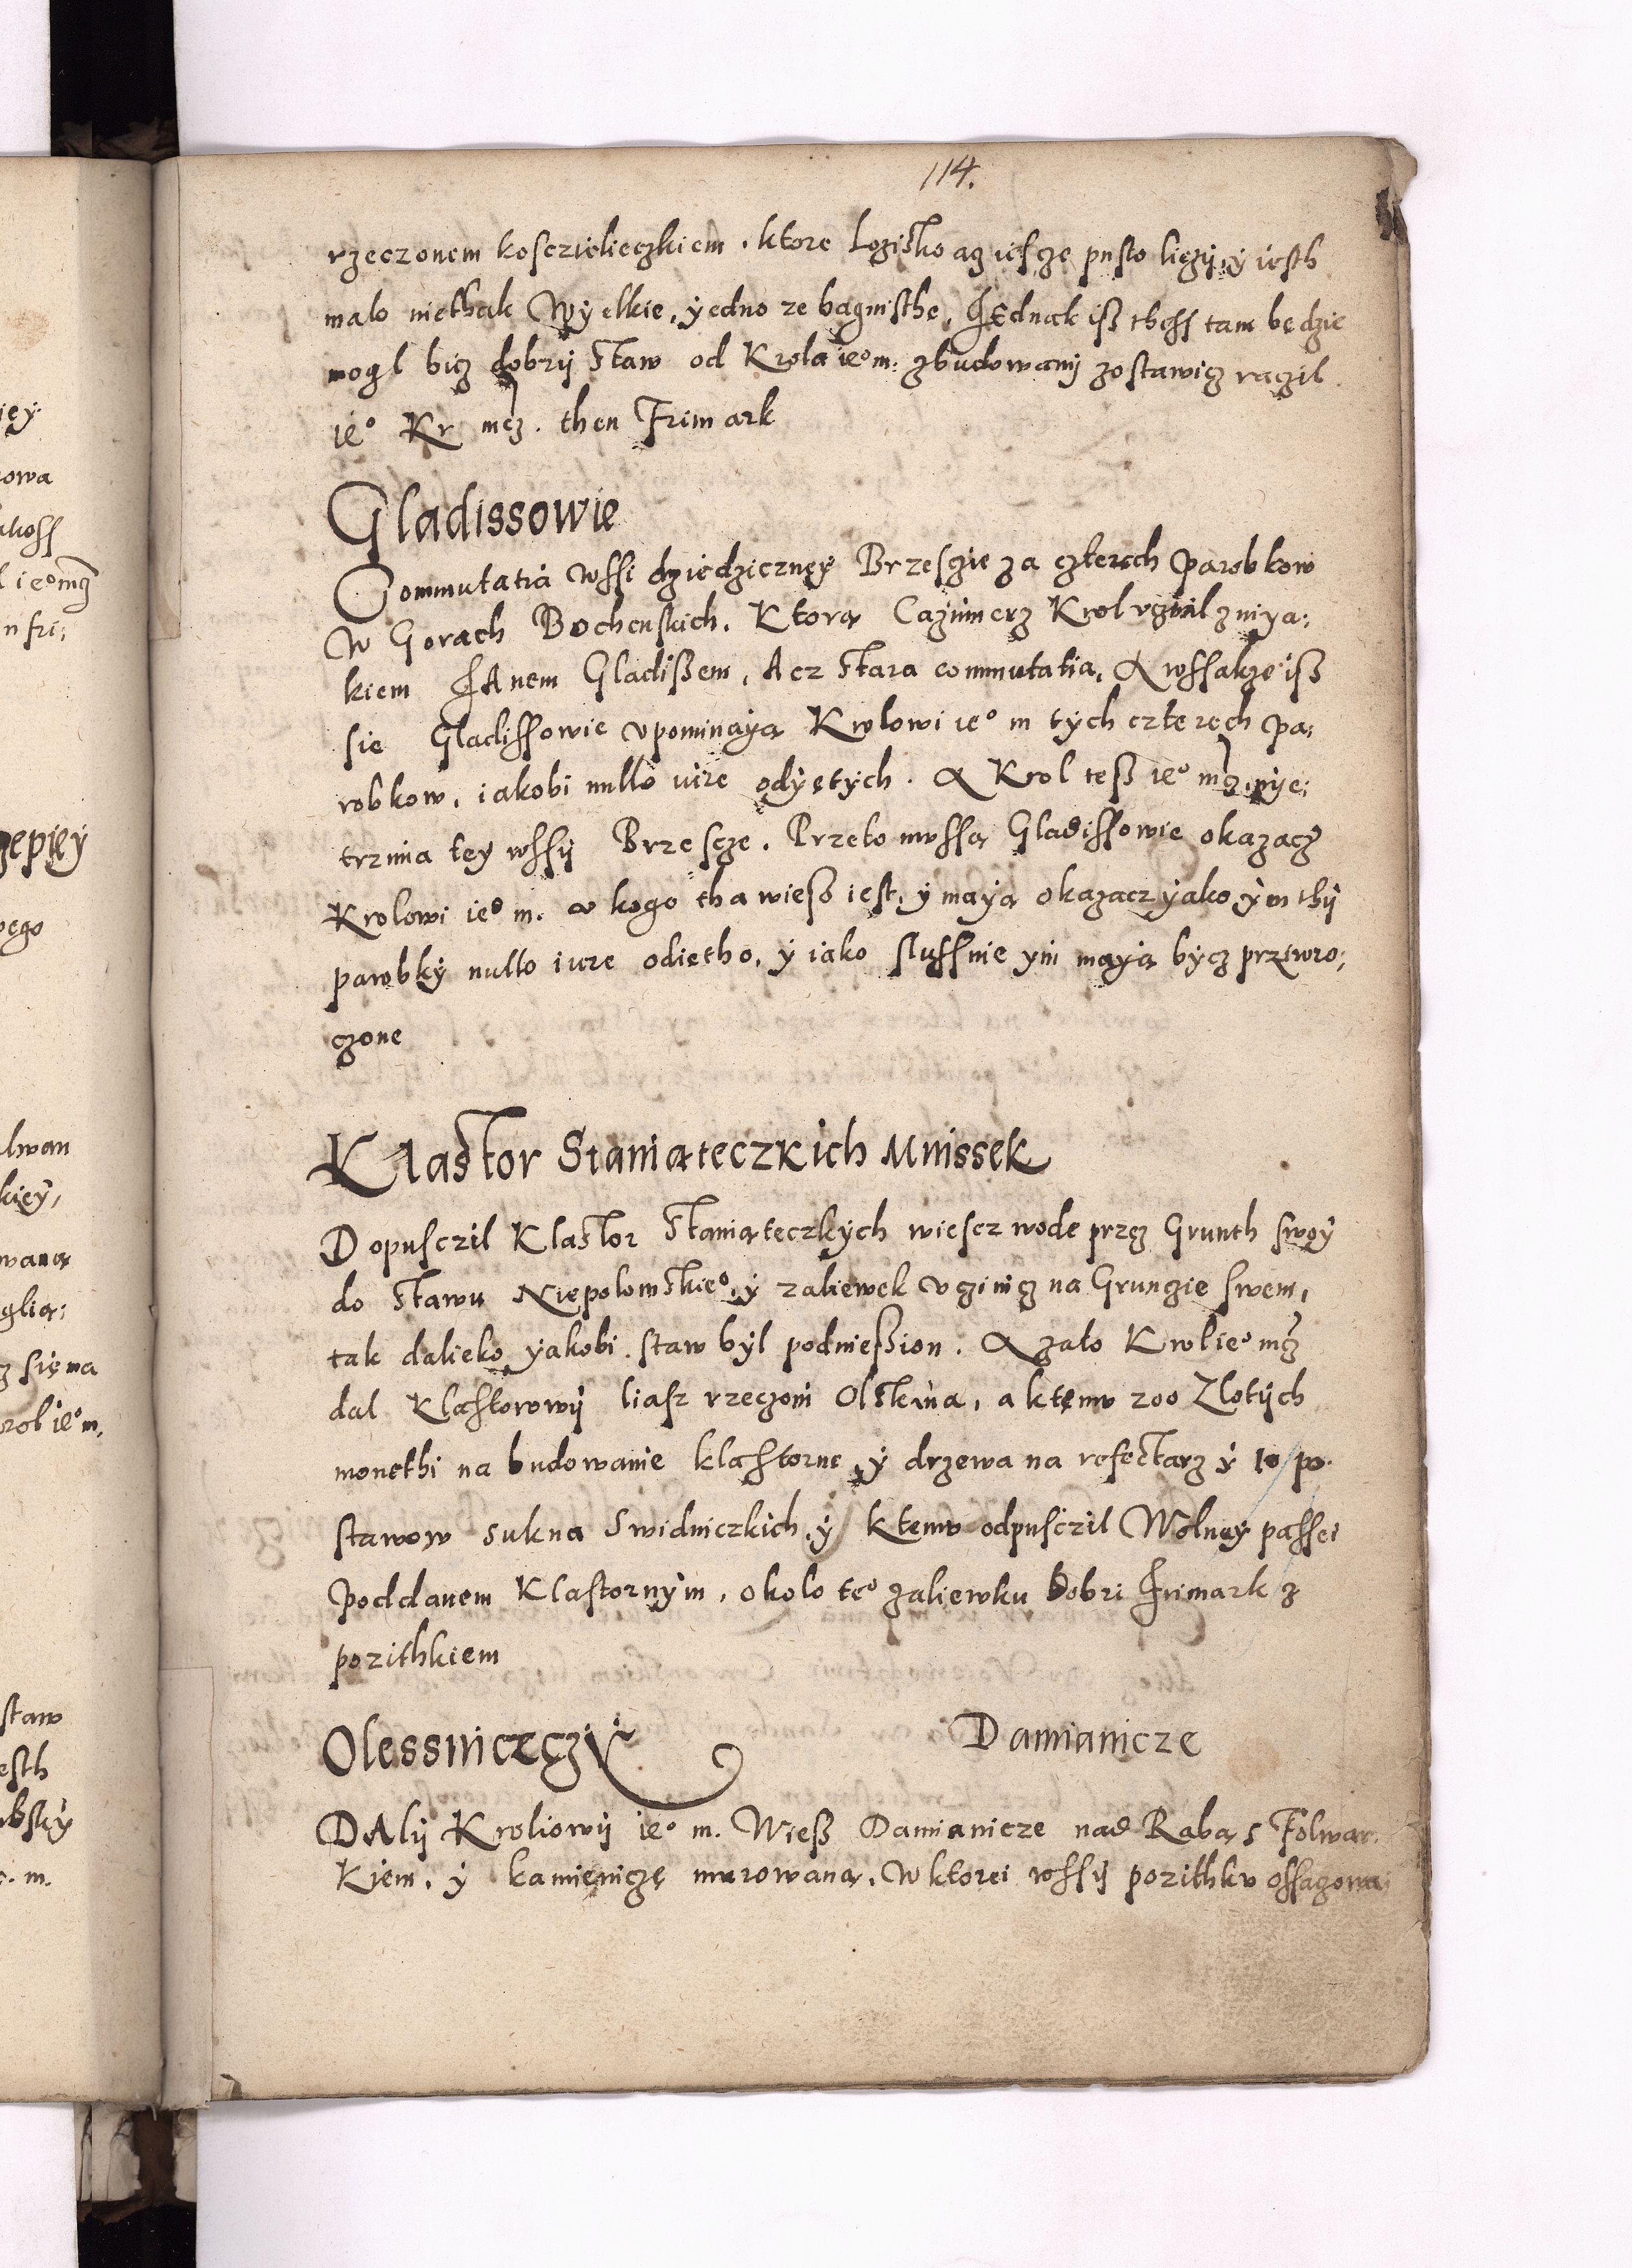 114.
rzeczonem kosczielieczkiem. ktore Lozisko aż iescze pusto lieży, y iesth
malo niethak Wyelkie, yedno ze bagnisthe, JEdnak iß thess tam będzie
mogl bicz dobrij staw od Krola ieº m. zbudowanij zostawicz raczil
ieº Kr mcz. then Frimark
Gladissowie
Commutatia wssi dziedziczney Brzesczie za czterech Parobkow
w Gorach Bochenskich. Ktorą Cazimierz Krol vczinil zniya:
kiem JAnem Gladißem, Acz stara commutatia, A wssakże iß
sie Gladissowie vpominayą Krolowi ieº m tych czterech pa:
robkow, iakobi nullo iure odyętych. A Krol teß ieº mcz. nye:
trzima tey wssij Brzescze. Przeto mussą Gladissowie okazacz
Krolowi ieº m. v kogo tha wieß iest, y mayą okazacz yako ym thij
parobky nullo iure odietho, y iako slussnie ym mayą bycz przywro:
czone
Klastor Staniąteczkich Mnissek
Dopusczil Klastor Staniąteczkych wiescz wode przez Grunth swoy
do stawu Niepolomskieº, y zaliewek vczinicz na Grunczie swem,
tak dalieko yakobi staw byl podnießion. A zato Krol ieº mcz
dal Klastorowij liasz rzeczoni Olszina, a ktemu 200 Zlotych
monethi na budowanie klastorne, y drzewa na refectarz y 10 po.
stawow sukna Swidniczkich, y ktemu odpusczil Wolney passei
Poddanem Klastornym, okolo teº zaliewku Dobri Frimark z
pozithkiem
Olessniczczy Damianicze
DAlij Kroliowij ieº m. Wieß Damianicze nad Rabą s Folwar.
Kiem, y kamieniczę murowaną, W ktorei wssij pozithku ossaczowa: